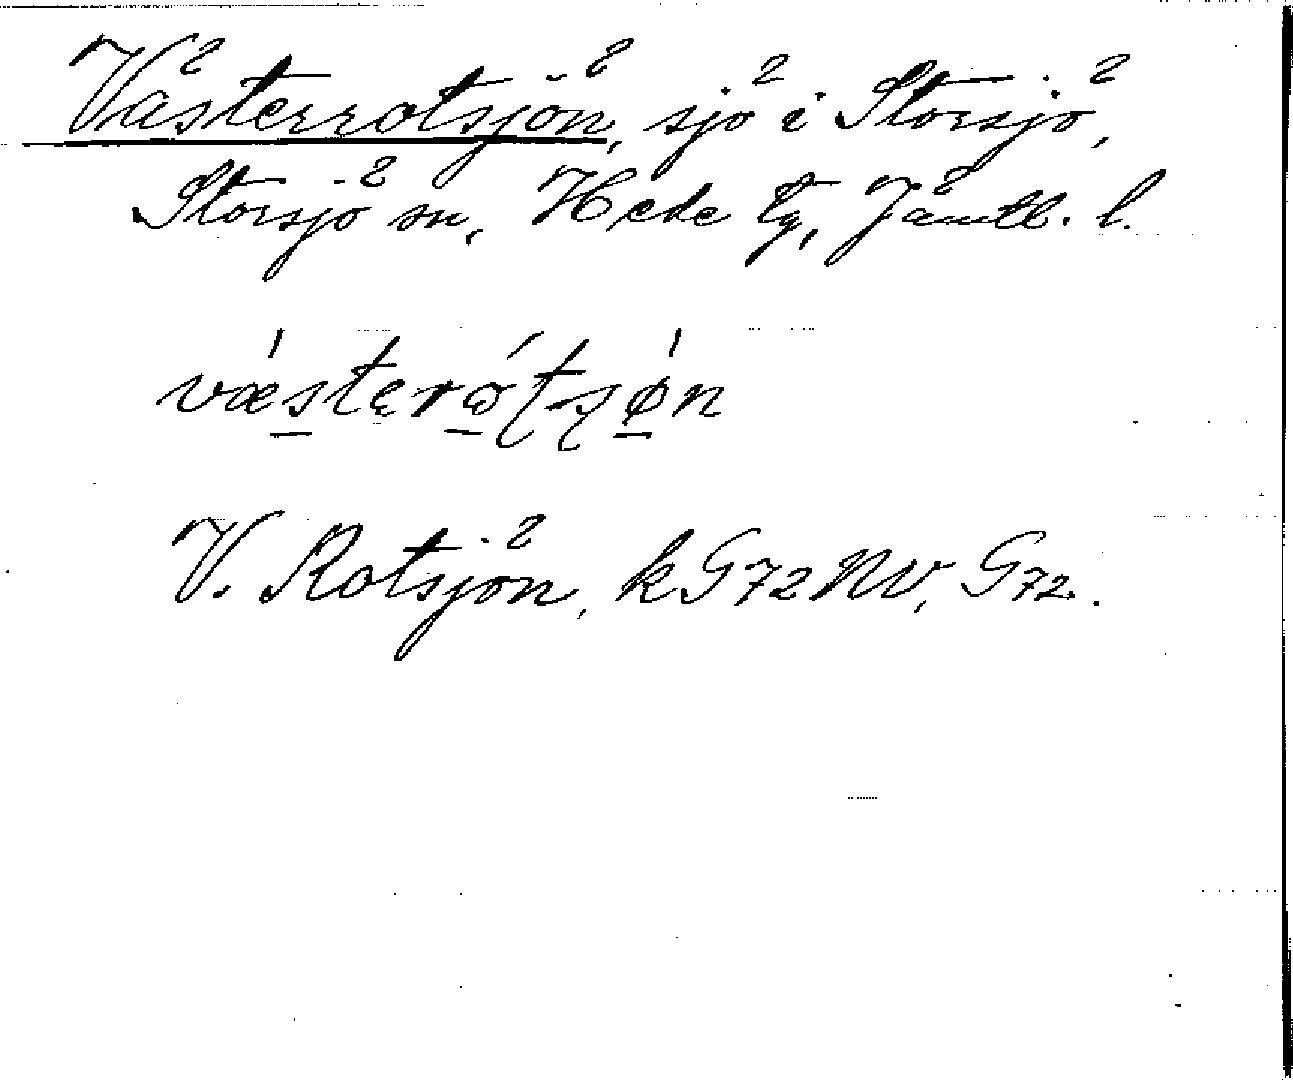 Västerrotsjön, sjö i Storsjö,
Storsjö sn, Hede tg, Jämtl. l.
væsterotsøn
V. Rotsjön, kG72NV, G72.